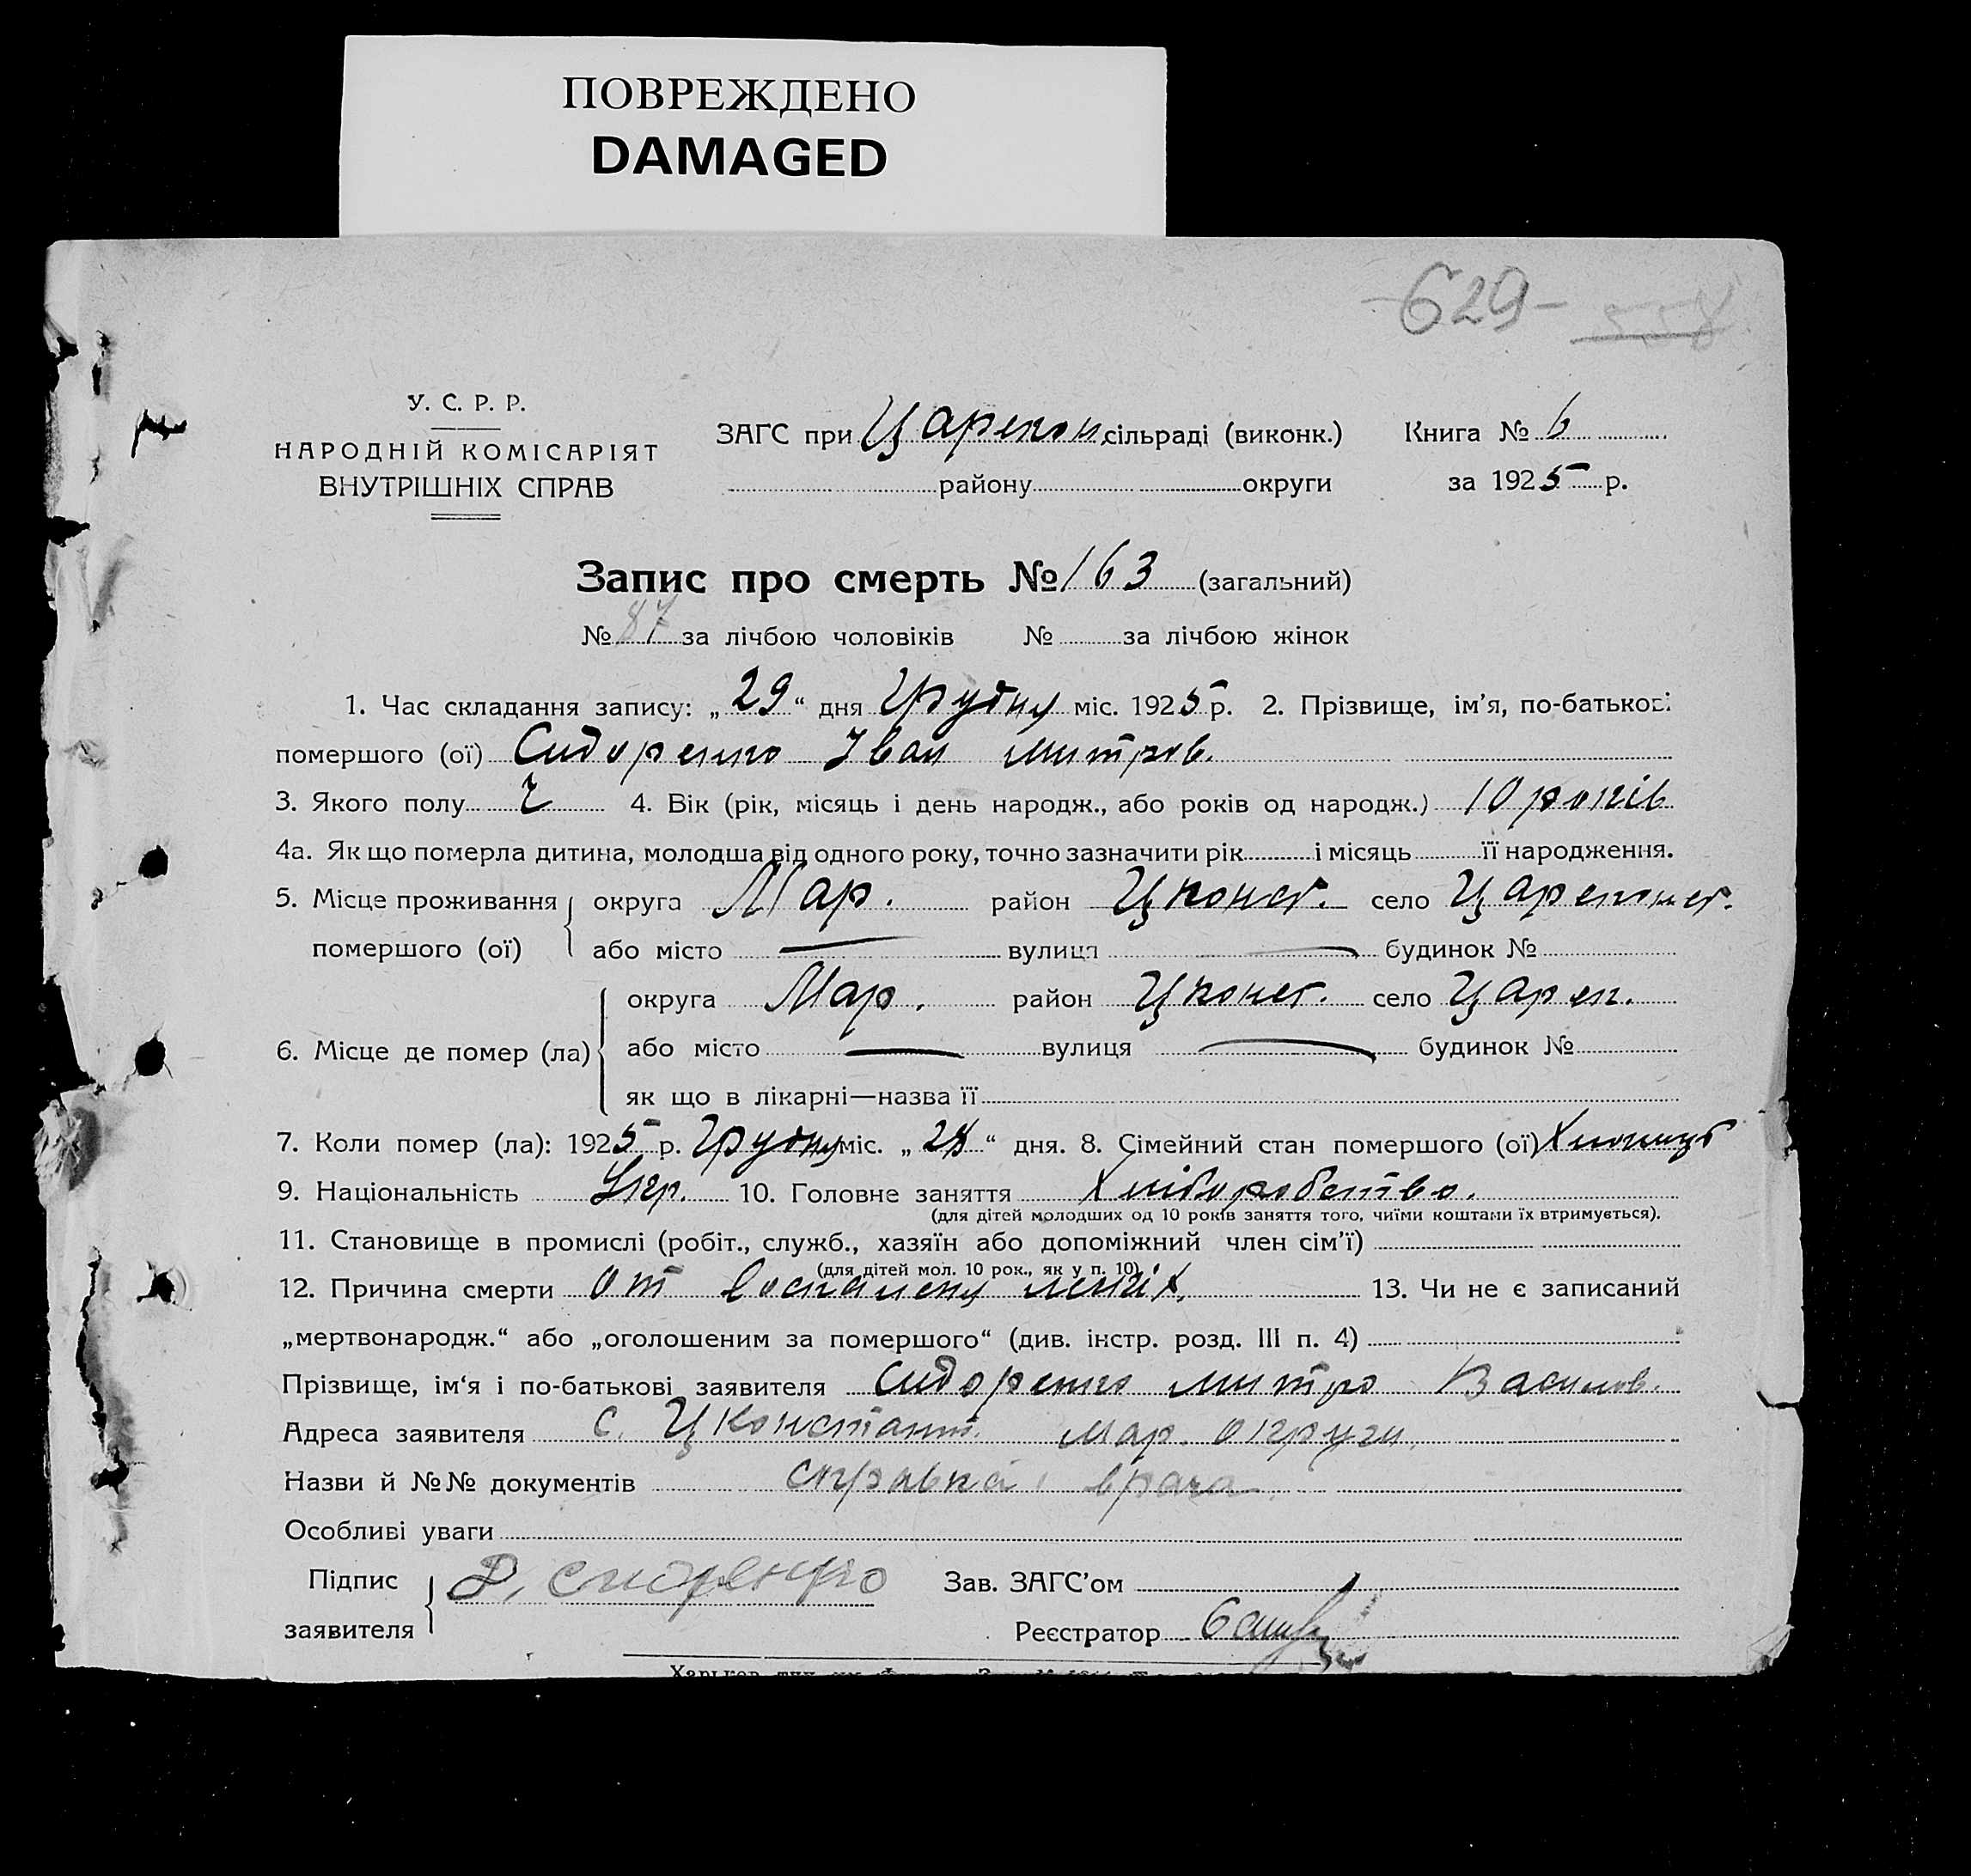 ПОВРЕЖДЕНО
DAMAGED
629- 558
У. С. Р. Р.
НАРОДНІЙ КОМІСАРІЯТ
ВНУТРІШНІХ СПРАВ
ЗАГС при Царекон. сільраді (виконк.) Книга № 6
району округи за 1925 р.
Запис про смерть № 163 (загальний)
№ 87 за лічбою чоловіків № за лічбою жінок
1. Час складання запису: „29“ дня Грудня міс. 1925 р. 2. Прізвище, ім’я, по-батькові
помершого (ої) Сидоренко Іван Митров.
3. Якого полу ч 4. Вік (рік, місяць і день народж., або років од народж.) 10 років
4а. Як що померла дитина, молодша від одного року, точно зазначити рік і місяць її народження.
5. Місце проживання помершого (ої) округа Мар. район Цконст. село Царекконст.
або місто — вулиця — будинок №
6. Місце де помер (ла) округа Мар. район Цконст. село Царек.
або місто — вулиця — будинок №
як що в лікарні—назва її
7. Коли помер (ла): 1925 р. Грудня міс. „28“ дня. 8. Сімейний стан помершого (ої) Хлопець
9. Національність Укр. 10. Головне заняття Хліборобство.
(для дітей молодших од 10 років заняття того, чиїми коштами їх втримується).
11. Становище в промислі (робіт., служб., хазяїн або допоміжний член сім’ї)
(для дітей мол. 10 рок., як у п. 10)
12. Причина смерти от воспалену легіх. 13. Чи не є записаний
„мертвонародж.“ або „оголошеним за помершого“ (див. інстр. розд. III п. 4)
Прізвище, ім‘я і по-батькові заявителя Сидоренко Митро Василов.
Адреса заявителя с. Цконстант. Мар. округи.
Назви й №№ документів справка врача
Особливі уваги
Підпис заявителя Д. Сидоренко Зав. ЗАГС’ом
Реєстратор